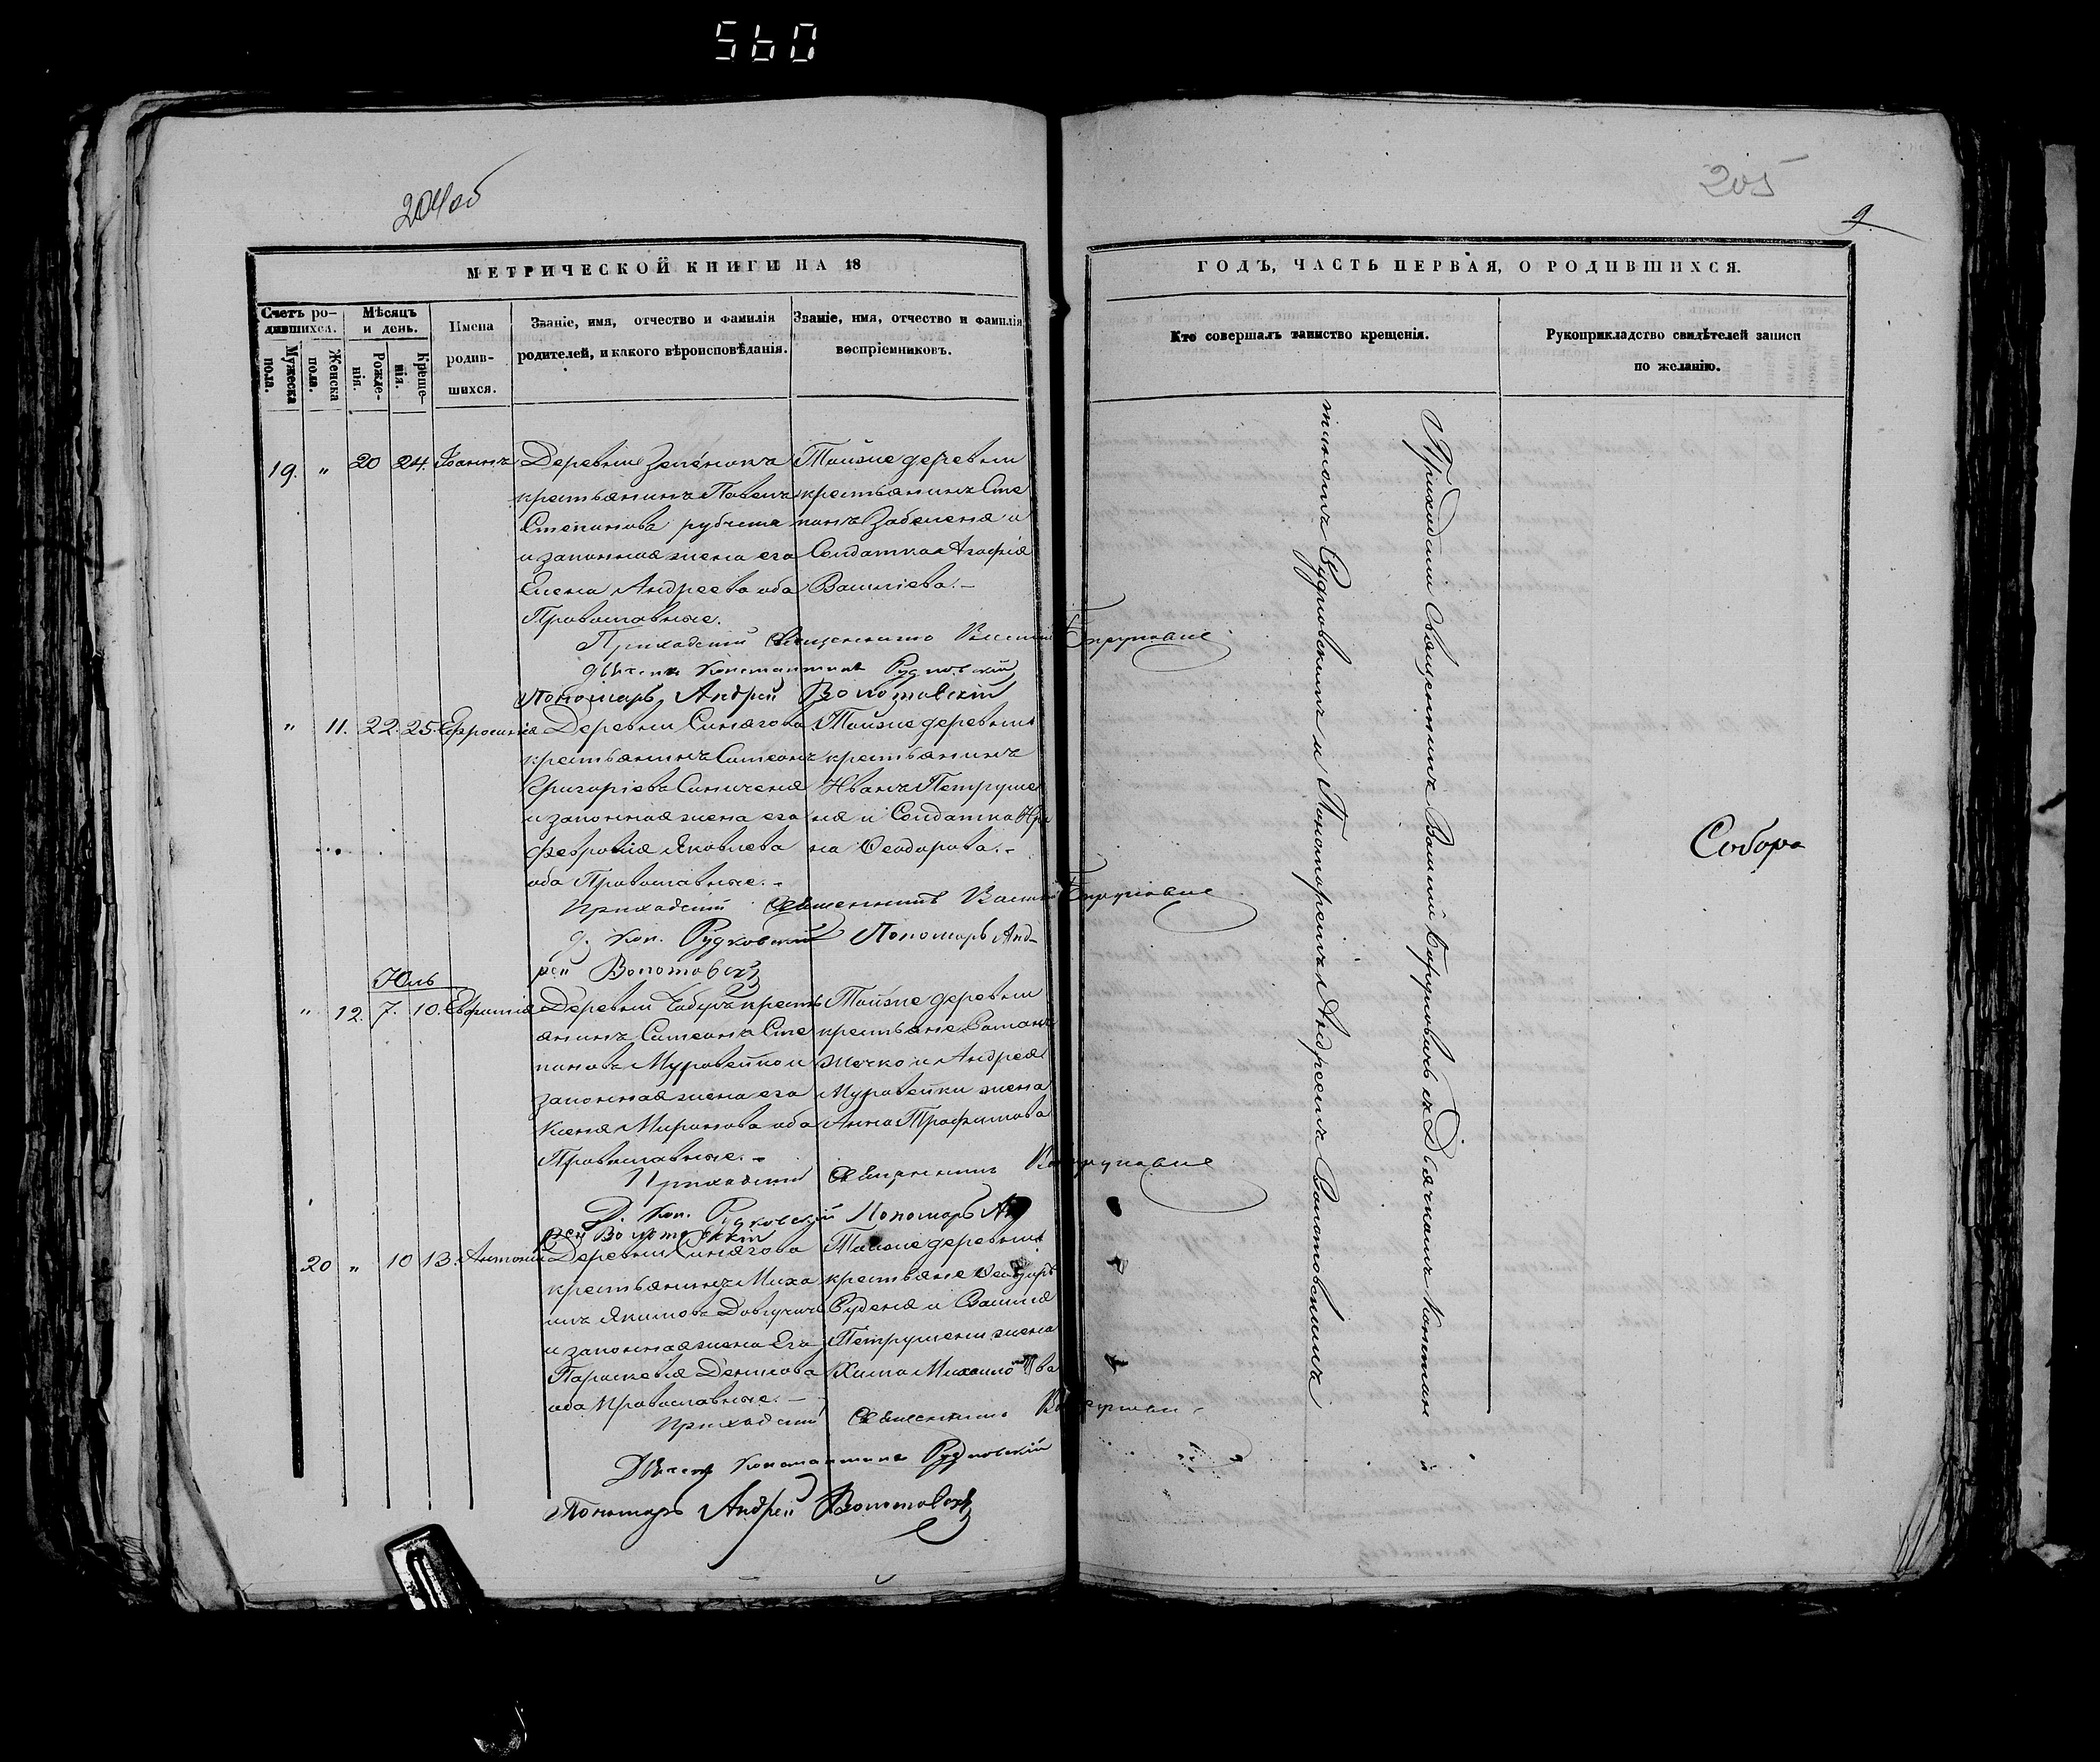 560
204об
205
9.
МЕТРИЧЕСКОЙ КНИГИ НА 18
ГОДЪ, ЧАСТЬ ПЕРВАЯ, О РОДИВШИХСЯ.
Счетъ ро-
дившихся.
Мужеска пола.
Женска пола.
Мѣсяцъ
и день.
Рожде-
нія.
Креще-
нія.
Имена
родив-
шихся.
Званіе, имя, отчество и фамилія
родителей, и какого вѣроисповѣданія.
Званіе, имя, отчество и фамилія
воспріемниковъ.
Кто совершалъ таинство крещенія.
Рукоприкладство свидѣтелей записи
по желанію.
19. " 20 24. Іоаннъ
Деревни
крестьянинъ Павелъ
Степановъ
и законная жена его
Елена Андреева оба
Православные.
Тойже деревни
крестьянинъ Сте
панъ и
Солдатка Агафія
Василіева.-
Приходскій Священникъ Василій
Дьячекъ Константинъ Рудковскій
Пономарь Андрей Волотовскій
" 11. 22. 25. Ефросинія
Деревни Синягова
крестьянинъ Симеонъ
Григоріевъ Синиченя
и законная жена его
Февронія Яковлева
оба Православные.-
Тойже деревни
крестьянинъ
Иванъ Петруше
ня и Солдатка Ири
на Феодорова.-
Приходскій Священникъ Василій
Д. Кон. Рудковскій Пономарь Анд-
рей Волотовскій
Юль
" 12. 7. 10. Евфимія
Деревни крестъ
янинъ Симеонъ Сте
пановъ Муравейко и
законная жена его
Ксенія Миронова оба
Православные.-
Тойже деревни
крестьяне Романъ
Мечко и Андрея
Муравейки жена
Анна Трофимова
Приходскій Священникъ
Д. Кон. Рудковскій Пономарь Анд
рей Волотовскій
20 " 10 13. Антоній
Деревни Синягова
крестьянинъ Миха
илъ Якимовъ
и законная жена Его
Параскевія Денисова
оба Православные.-
Тойже деревни
крестьяне Феодоръ
Руденя и Василія
Петрушени жена
Химо Михайлова
Приходскій Священникъ
Дьячекъ Константинъ Рудковскій
Пономарь Андрей Волотовскій
Приходскій Священникъ Василій съ Дьячкомъ Констан
тиномъ Рудковскимъ и Пономаремъ Андреемъ Волотовскимъ